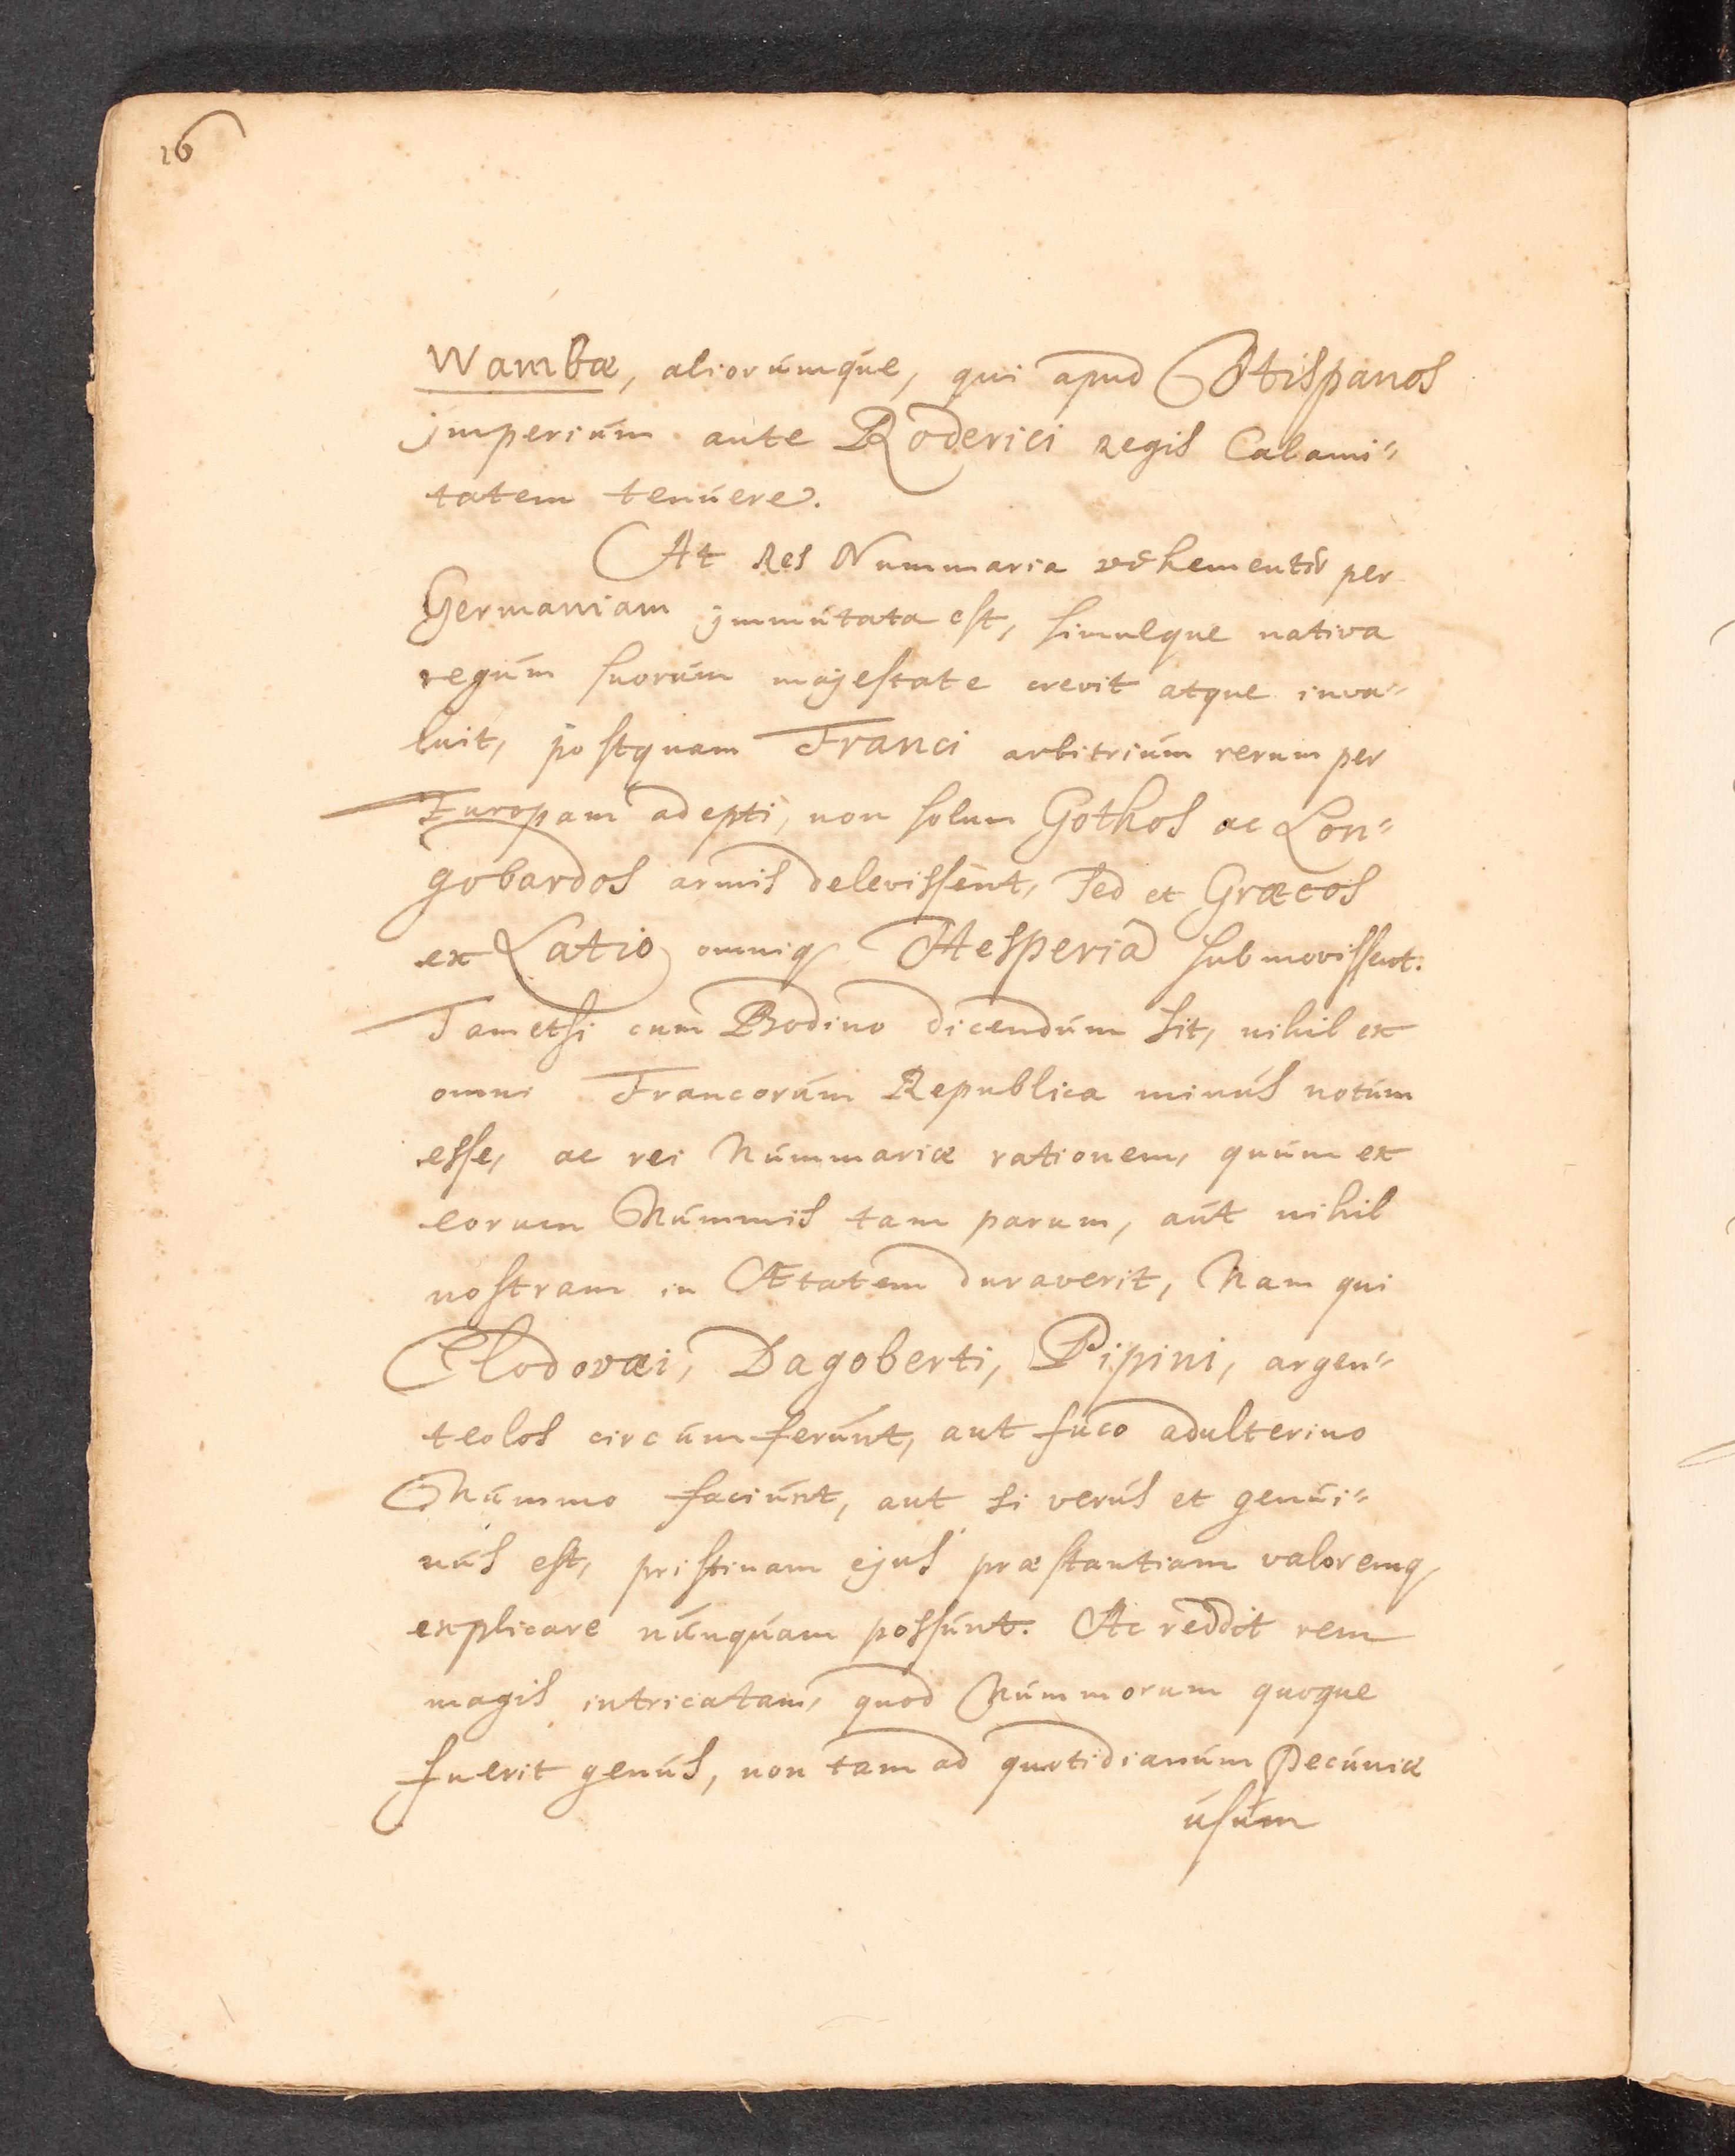 16
Wambæ, aliorúmqúe, qui apud Hispanos
jmperiúm ante Roderici regis Calami"
tatem tenúere.
At Res Nummaria vehementer per
Germaniam jmmútata est, simulque nativa
regúm suorúm majestate crevit atque inva"
luit, postquam Franci arbitriúm rerum per
Europam adepti, non solum Gothos ac Lon"
gobardos armis delevissent, sed et Græcos
ex Latio omniq Hesperia submovissent.
Tametsi cum Bodino dicendúm sit, nihil ex
omni Francorúm Republica minús notúm
esse, ac rei Númmariæ rationem, quúm ex
eorum Númmis tam parum, aút nihil
nostram in Ætatem duraverit, Nam qui
Clodovæi, Dagoberti, Pipini, argen"
teolos circúmferúnt, aut fúco adulterino
Númmo faciúnt, aut si verús et genúi"
nús est, pristinam ejus præstantiam valoremq
explicare núnqúam possúnt. Ac reddit rem
magis intricatam, quod Númmorum quoque
fuerit genús, non tam ad quotidianúm Pecúniæ
úsúm